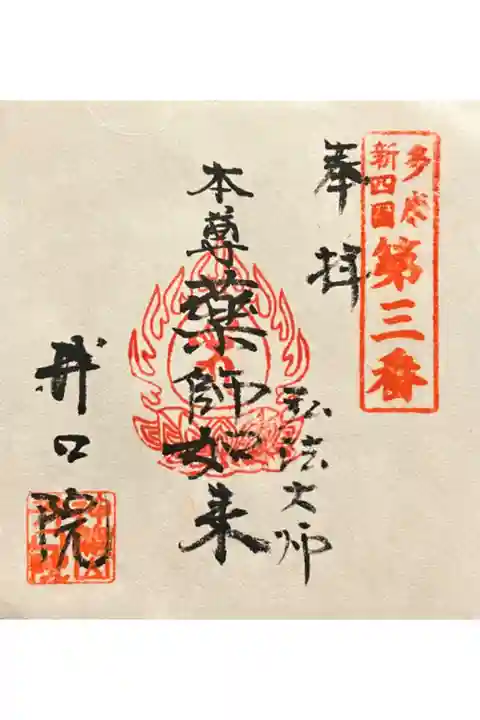 多摩
新四国
第三番
奉拝
弘法大師
本尊薬師如来
井口院